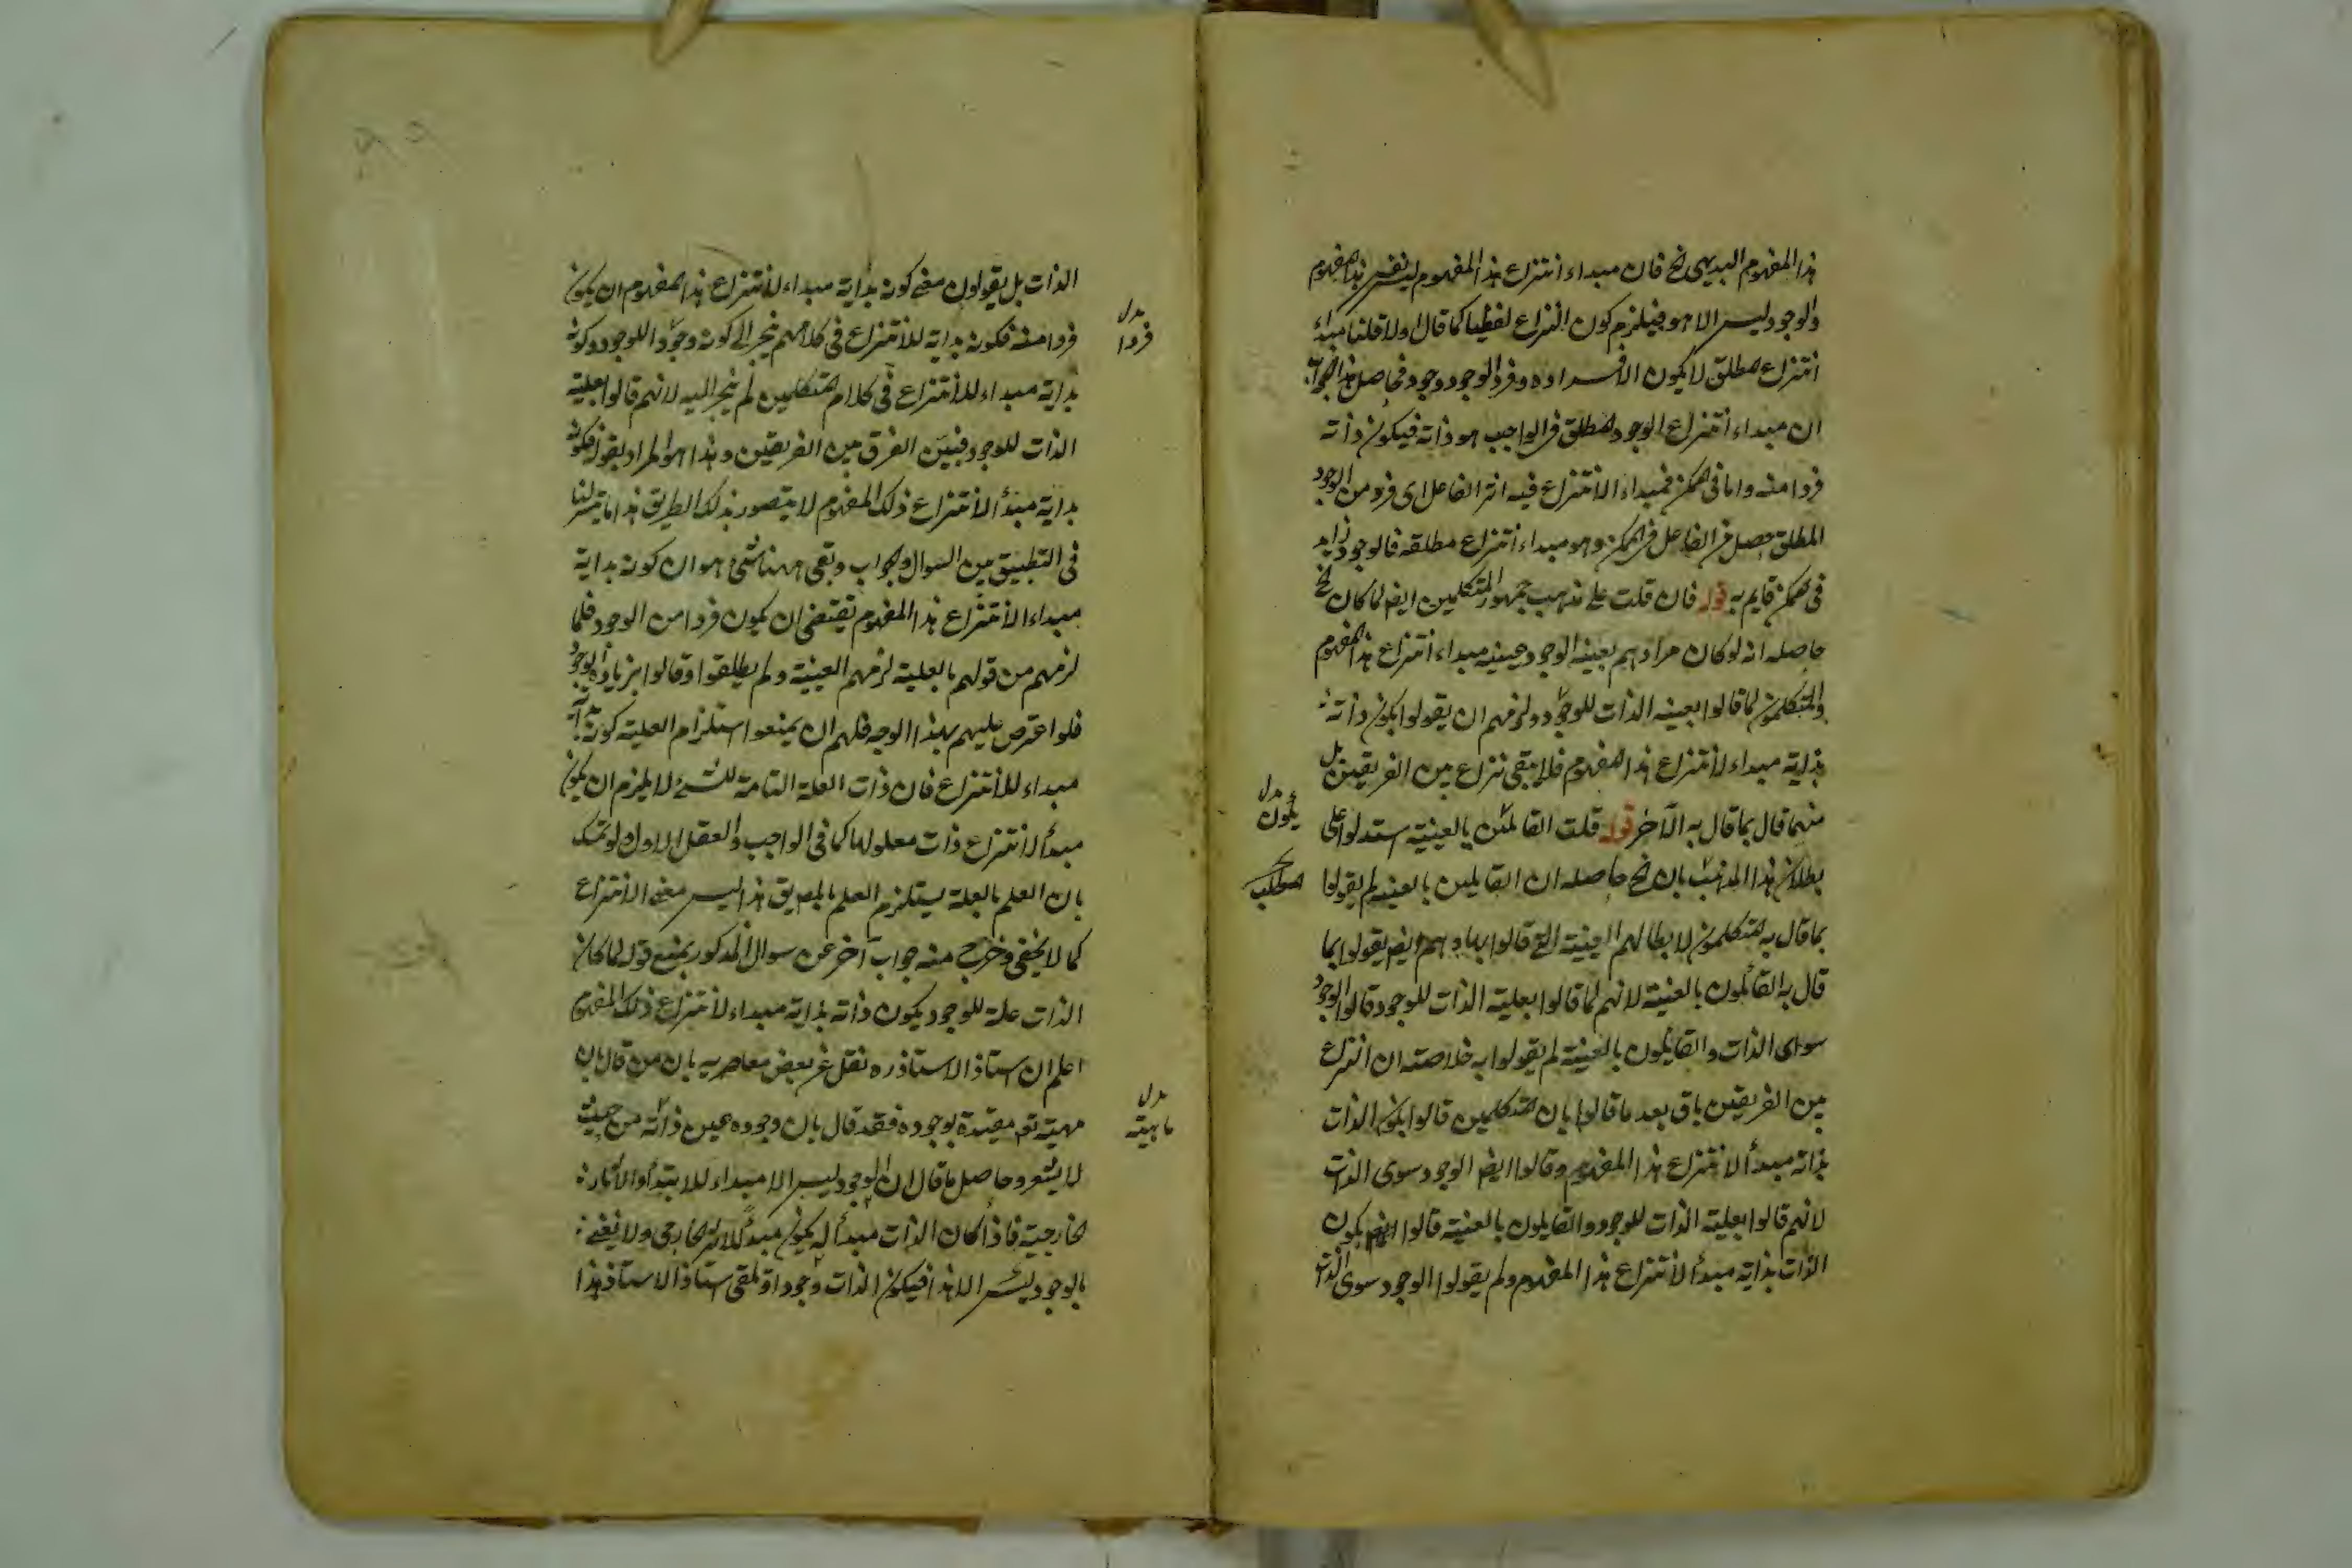 هذا المفهوم البديهى الخ فان مبداء انتزاع هذا المفهوم ليس نفس هذا المفهوم
والوجود ليس الا هو فيلزم كون النزاع لفظيا كما قال اولا قلنا مبداء
انتزاع المطلق لا يكون الا افراده وفرد الوجود وجود فحاصل هذا الجواب
ان مبداء انتزاع الوجود المطلق فى الواجب هو ذاته فيكون ذاته
فردا منه واما فى الممكن فمبداء الانتزاع فيه اثر الفاعل اى فرد من الوجود
المطلق حصل من الفاعل فى الممكن وهو مبداء انتزاع مطلقه فالوجود زايد
فى الممكن قايم به قوله فان قلت على مذهب جمهور المتكلمين ايضا لما كان الخ
حاصله انه لو كان مرادهم بعينية الوجود عينية مبداء انتزاع هذا المفهوم
والمتكلمون لما قالوا بعينه الذات للوجود ولزمهم ان يقولوا بكون ذاته
بذاته مبداء لانتزاع هذا المفهوم فلا يبقى نزاع بين الفريقين بل
منهما قال بما قال به الآخر قوله قلت القائلين بالعينية استدلوا على
بطلان هذا المذهب بان الخ حاصله ان القايلين بالعينية لم يقولوا
بما قال به المتكلمون لابطالهم العينية التى قالوا بها وهم ايضا يقولوا بما
قال به القائلون بالعينية لانهم لما قالوا بعلية الذات للوجود قالوا الوجود
سواى الذات والقايلون بالعينية لم يقولوا به خلاصته ان النزاع
بين الفريقين باق بعد ما قالوا بان المتكلمين قالوا بكون الذات
بذاته مبدأ لانتزاع هذا المفهوم وقالوا ايضا الوجود سوى الذات
لانهم قالوا بعلية الذات للوجود والقايلون بالعنية قالوا ايضا بكون
الذات بذاته مبدأ لانتزاع هذا المفهوم ولم يقولوا الوجود سوى الذات
بدل
يكون
الذات بل يقولون معنى كونه بذاته مبداء لانتزاع هذا المفهوم ان يكون
فردا منه فكونه بذاته للانتزاع فى كلامهم ينجر الى كونه وجودا للوجود وكونه
بذاته مبداء للانتزاع فى كلام المتكلمين لم ينجر اليه لانهم قالوا بعلية
الذات للوجود فتبين الفرق بين الفريقين وهذا هو المراد بقوله فكونه
بذاته مبدأ لانتزاع ذلك المفهوم لا يتصور بذلك الطريق هذا ما يتيسر لنا
فى التطبيق بين السوال والجواب وبقى ههنا شئ هو ان كونه بذاته
مبداء الانتزاع هذا المفهوم يقتضى ان يكون فردا من الوجود فلما
لزمهم من قولهم بالعلية لزمهم العينية ولم يطلقوا وقالوا بزيادة الوجود
فلو اعترض عليهم بهذا الوجه فلهم ان يمنعوا استلزام العلية كونه بذاته
مبداء للانتزاع فان ذات العلة التامة للشئ لا يلزم ان يكون
مبدأ لانتزاع ذات معلولها كما فى الواجب والعقل الاول ولو تمسك
بان العلم بالعلة يستلزم العلم بالمعلول هذا ليس معنى الانتزاع
كما لا يخفى وخرج منه جواب آخر عن سوال المذكور بمنع قوله لما كان
الذات علة للوجود يكون ذاته بذاته مبداء لانتزاع ذلك المفهوم
اعلم ان استاذ الاستاذ ره نقل عن بعض معاصريه بان من قال بان
مهيته تعالى مقيدة بوجوده فقد قال بان وجوده عين ذاته من حيث
لا يشعر وحاصل ما قال ان الوجود ليس الا مبداء للابتداء والآثار
خارجية فاذا كان الذات مبدأ له يكون مبدأ للاثر الخارجى ولا نعنى
بالوجود ليس الا هذا فيكون الذات وجودا وتلقى استاذ الاستاذ هذا
بدل
فردا
بدل
ماهيته